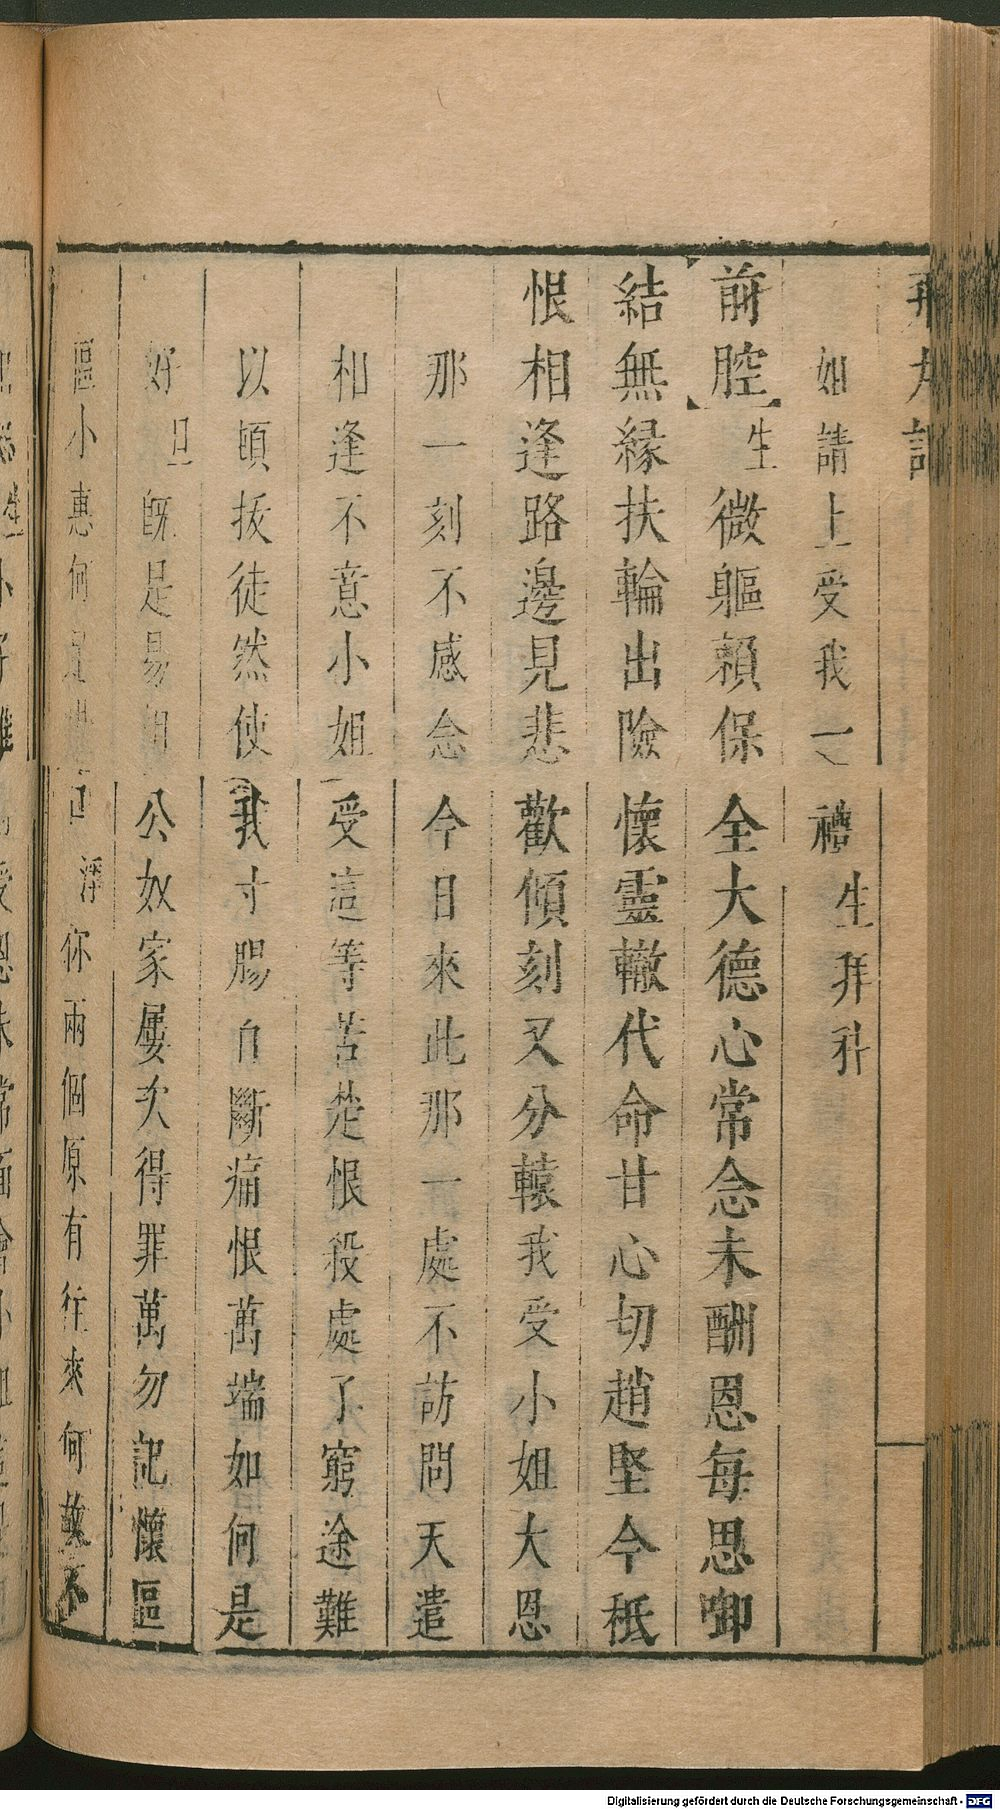 丸記
姐請上受我一禮生拜科
前腔生微軀賴保全大德心常念未酬恩每思啣
結無緣扶輪出險懷靈轍代命甘心切趙堅今秪
恨相逢路邊見悲歡傾刻又分轅我受小姐大恩
那一刻不感念今日來此那一處不訪問天遣
相逢不意小姐受這等苦楚恨殺處了窮途難
以頓拔徒然使我寸腸自斷痛恨萬端如何是
好旦旣是易相公奴家屢次得罪萬勿記懷區
區小惠何足掛口淨你兩個原有往來何故不
Digitalisierung gefördert durch die Deutsche Forschungsgemeinschaft - DFG